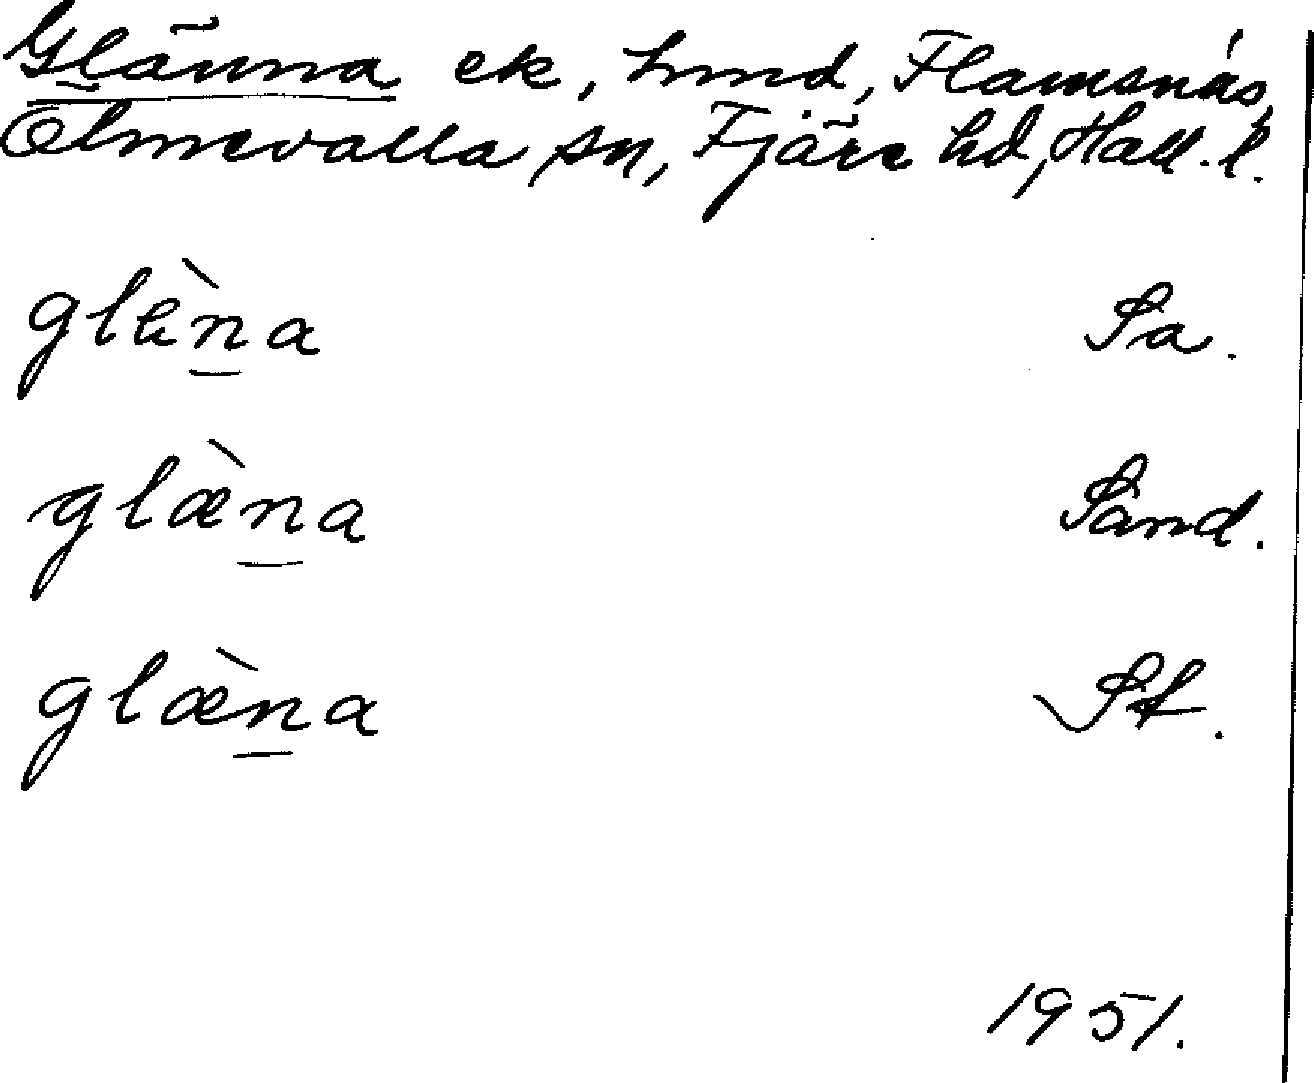 Glänna ek, lund, Flamsnäs,
Ölmevalla sn, Fjäre hd, Hall. l.
glèna Sa.
glæ̀na Sand.
glæ̀na St.
1951.